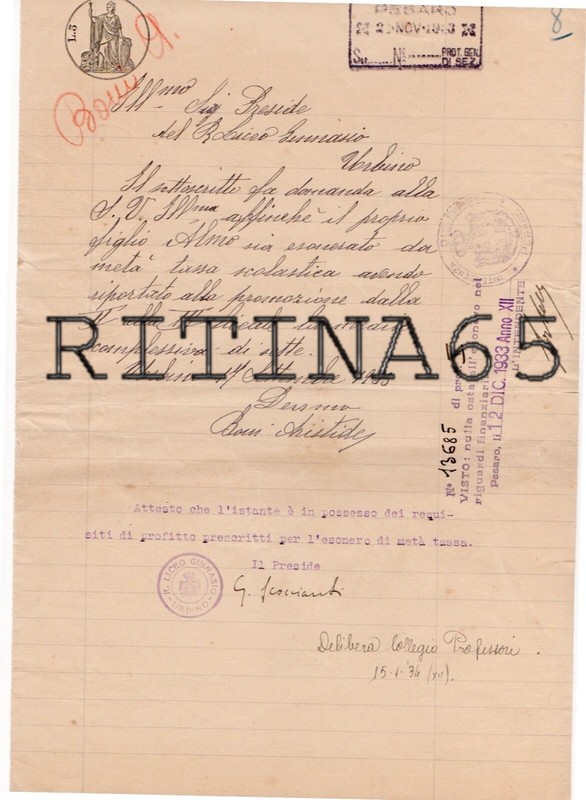 L.3
PESARO
NOV. 1933
PROT. GEN.
DI SEZ.
8
Boni A.
Ill.mo Sig. Preside
del R. Liceo Ginnasio
Urbino
Il sottoscritto fa domanda alla
S. V. Ill.ma affinchè il proprio
figlio Almo sia esonerato da
metà tassa scolastica avendo
riportato alla promozione dalla
complessiva di sette.
Urbino 1933
Devmo
Boni Aristide
RITINA65
Nº 13685 di pr
VISTO: nulla osta all'esonero nei
riguardi finanziari
Pesaro, li 12 DIC. 1933 Anno XII
L'INTENDENTE
Attesto che l'istante è in possesso dei requi-
siti di profitto prescritti per l'esonero di metà tassa.
Il Preside
R. LICEO GINNASIO
URBINO
G. Scoccianti
Delibera Collegio Professori.
15-1-'34 (XII).